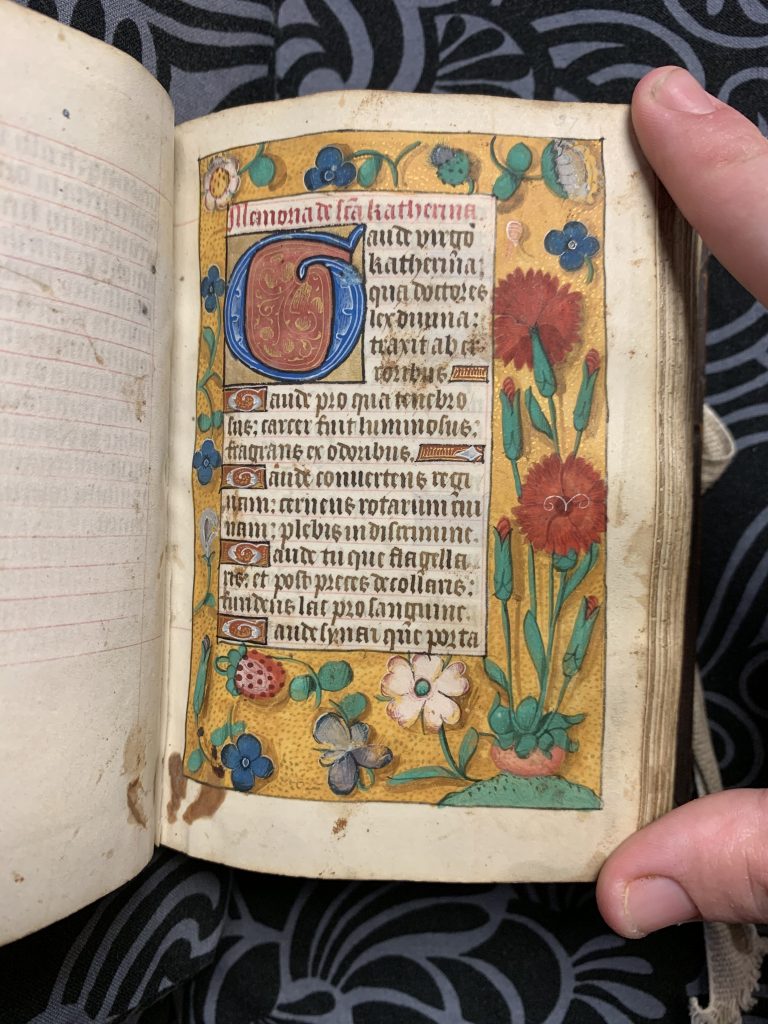 Memoria de sca katherina.
Gaude virgo
katherina:
qua doctores
lex divina:
traxit ab er-
roribus
Gaude pro qua tenebro
sus: carcer fuit luminosus:
fragrans ex odoribus.
Gaude convertens regi
nam: cernens rotarum rui
nam: plebis in discrimine.
Gaude tu que flagella
ris: et post preces decollaris:
fundens lac pro sanguine
Gaude synai que porta